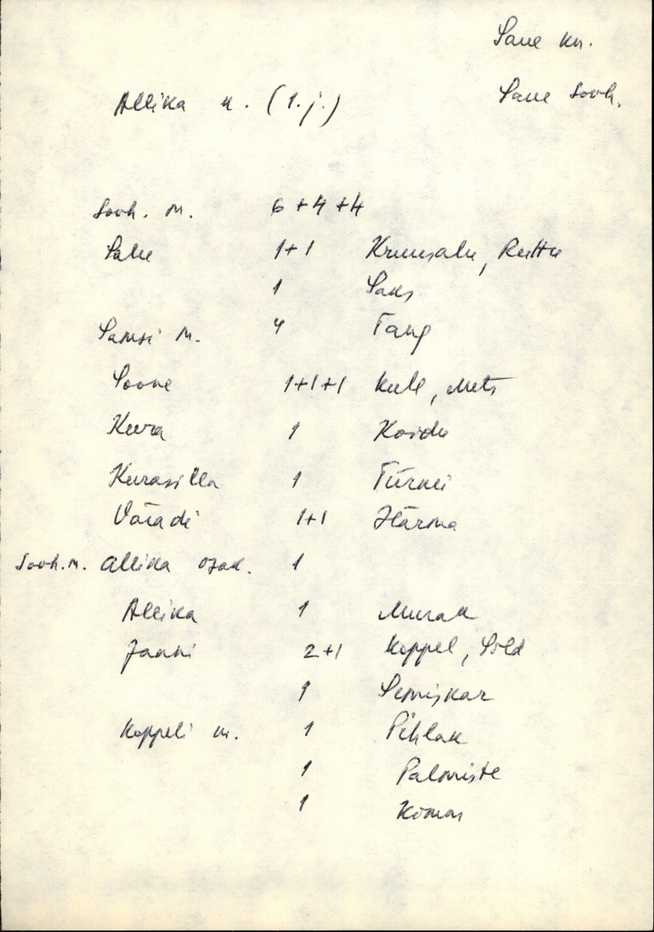 Saue kn.
Allika k. (1.j.)
Saue Sovh.
Sovh. m. 6+4+4
Salu 1+1 Kruusalu, Ruttu
1 Saks
m. 4 Tang
Soone 1+1+1 Kule, Mets
Kuura 1 Koidu
Kurasilla 1 Türnei
Väradi 1+1 Härma
Sovh.m. Allika osak. 1
Allika 1 Murak
Jaani 2+1 Koppel, Sild
1 Semiskar
Koppeli m. 1 Pihlak
1 Palomiste
1 Komas